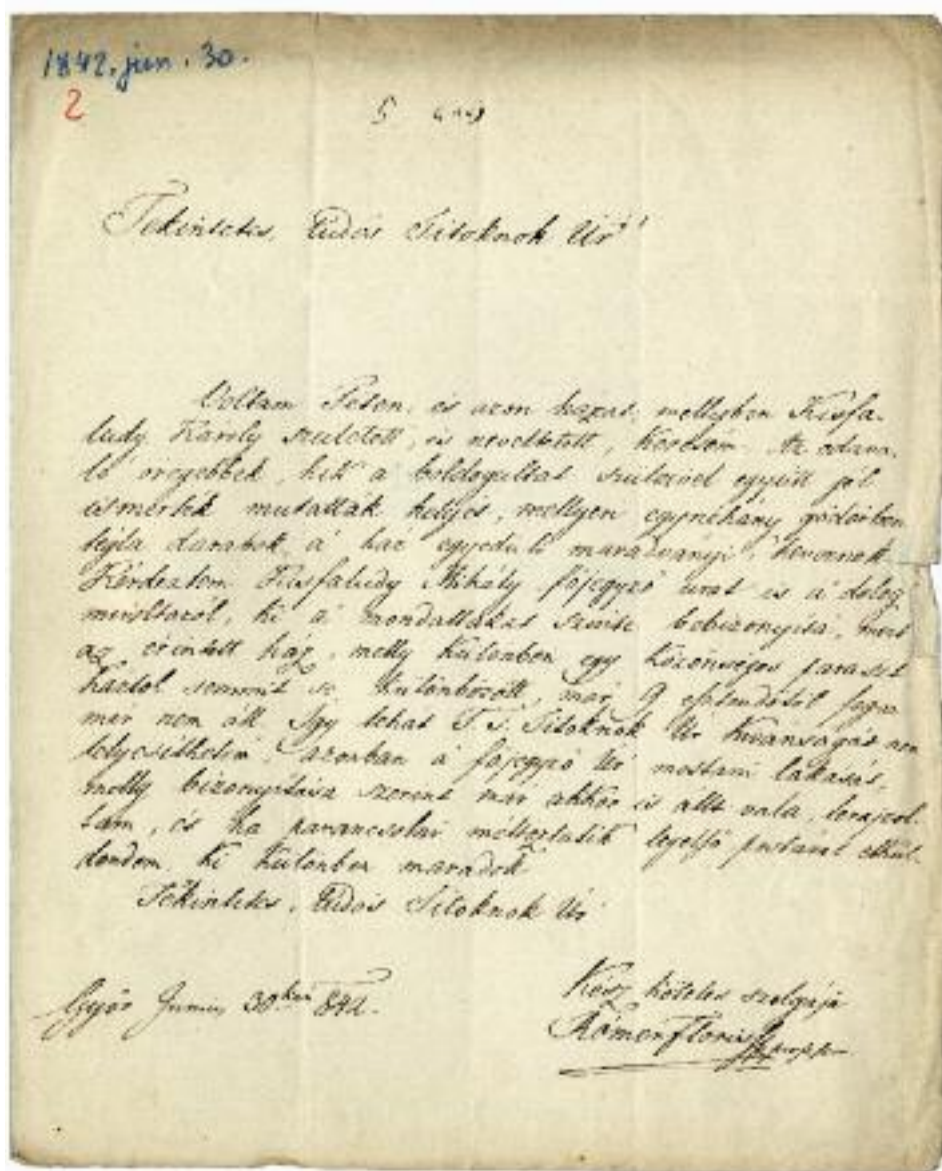 1842. jun. 30.
2
5
Tekintetes, Tudós Titoknok Úr!
Voltam Téten, és azon házat, mellyben Kisfa-
ludy Károly született, és neveltetett, kerestem. Az odava-
ló öregebbek, kik a boldogultat szüleivel együtt jól
ismerték mutatták helyét, mellyen egynéhány gödörben
tégla darabok, a' ház egyedüli maradványi, hevernek
Kérdeztem Kisfaludy Mihály főjegyző urat is a' dolog
mivoltáról, ki a' mondattakat szinte bebizonyitá, mert
az érintett ház, melly különben egy közönséges paraszt
háztól semmit se különbözött, már 9 esztendőtől fogva
már nem áll Igy tehát T. T. Titoknok Úr kivánságát nem
telyesithetém, azonban a' főjegyző Úr mostani lakását,
melly bizonyitása szerint már akkor is állt vala, lerajzol-
tam, és ha parancsolni méltóztatik legelső postával elkül-
dendem. Ki különben maradok
Tekintetes, Tudós Titoknok Úr
Győr Junius 30kán 842.
Kész köteles szolgája
Rómer Flóris